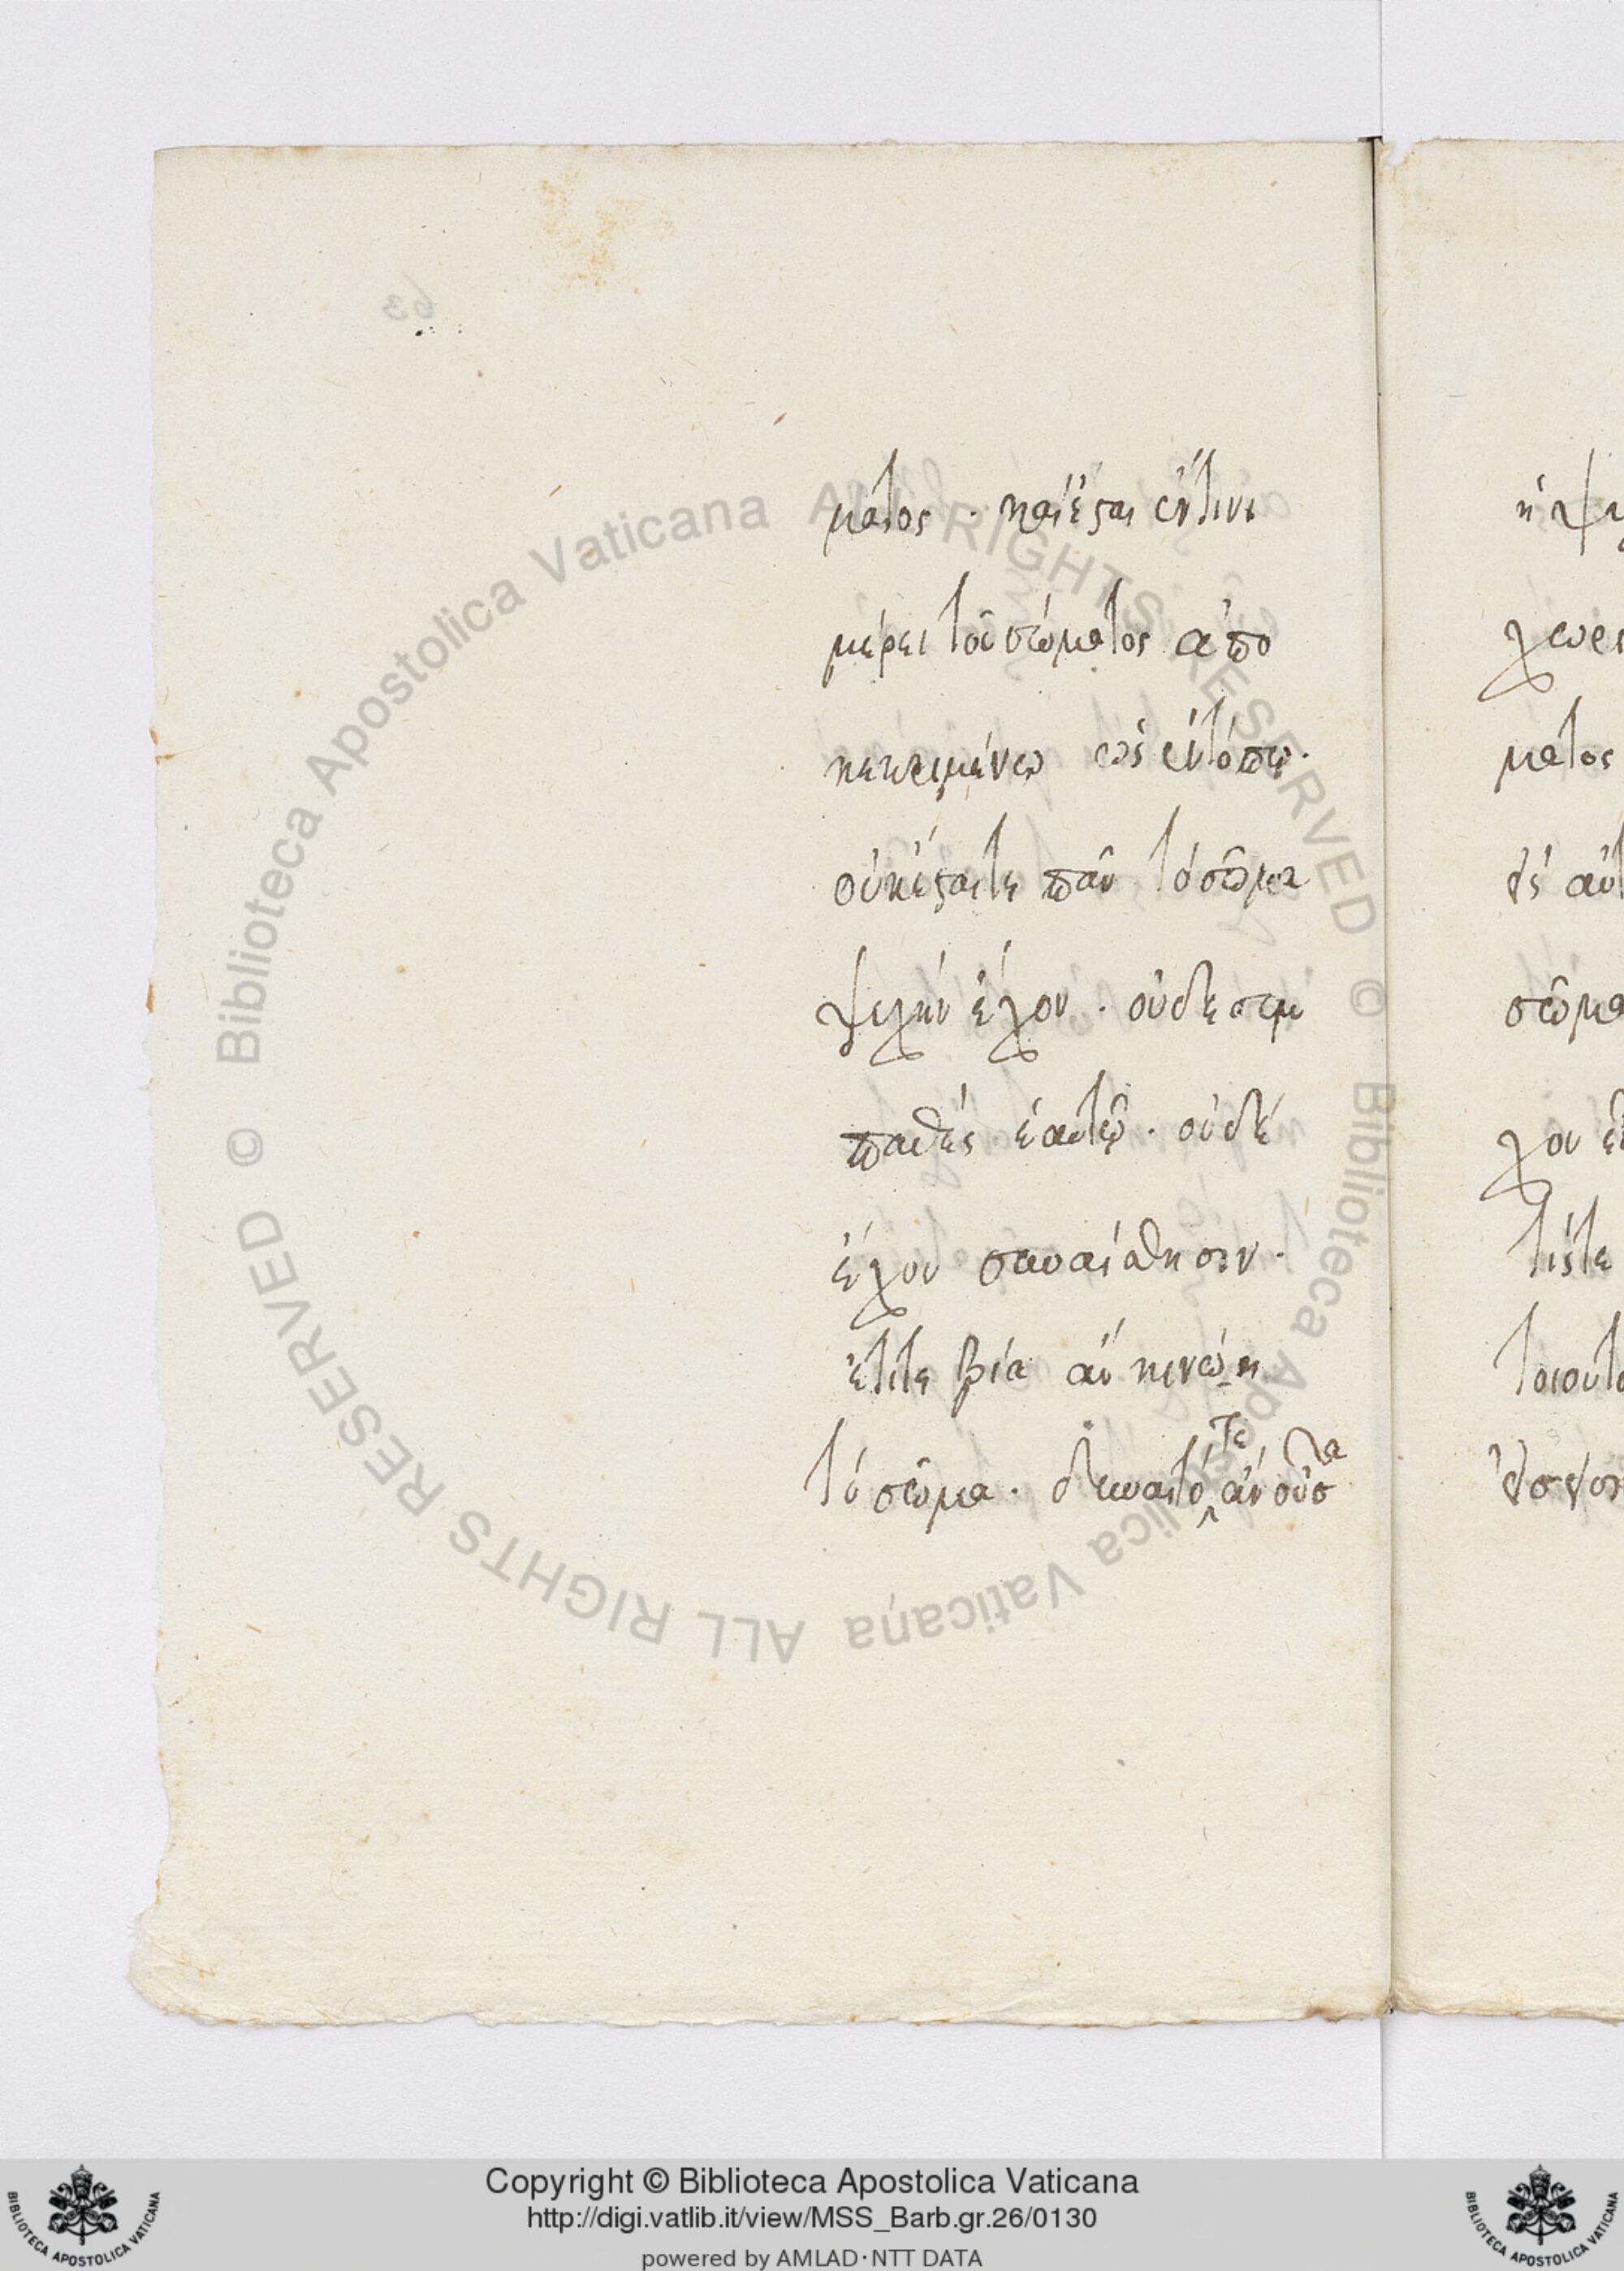 ματος · καὶ ἔσται ἐν τινι
μέρει τοῦ σώματος ἀπο
κεκριμένω ὡς ἐν τόπω·
οὐκ ἔσται τε πᾶν τὸ σῶμα
ψυχὴν ἔχον · οὐδὲ συμ
παθὲς ἑαυτῶ · οὐδὲ
ἔχον συναίσθησιν·
ἔτι τε βία ἂν κινώη
τὸ σῶμα · δέναιτό τε ἂν οὖσα
ἡ ψυ
χωρι
ματος
σῶμα
χον
τοιουτο
63
Copyright © Biblioteca Apostolica Vaticana
http://digi.vatlib.it/view/MSS_Barb.gr.26/0130
powered by AMLAD·NTT DATA
BIBLIOTECA APOSTOLICA VATICANA
BIBLIOTECA APOSTOLICA VATICANA
© Biblioteca Apostolica Vaticana ALL RIGHTS RESERVED © Biblioteca Apostolica Vaticana ALL RIGHTS RESERVED